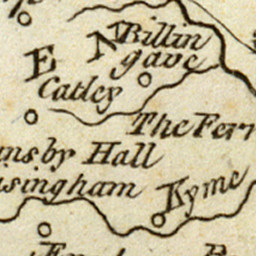 E N
Billin
gave
Catley
The Fern
ns by Hall
singham
Kyme